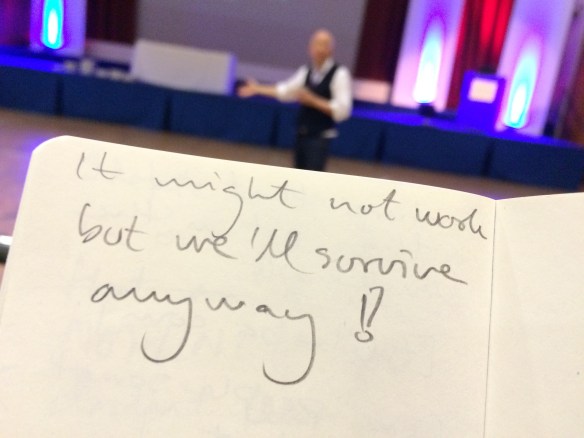 It might not work
but we'll survive
anyway !?